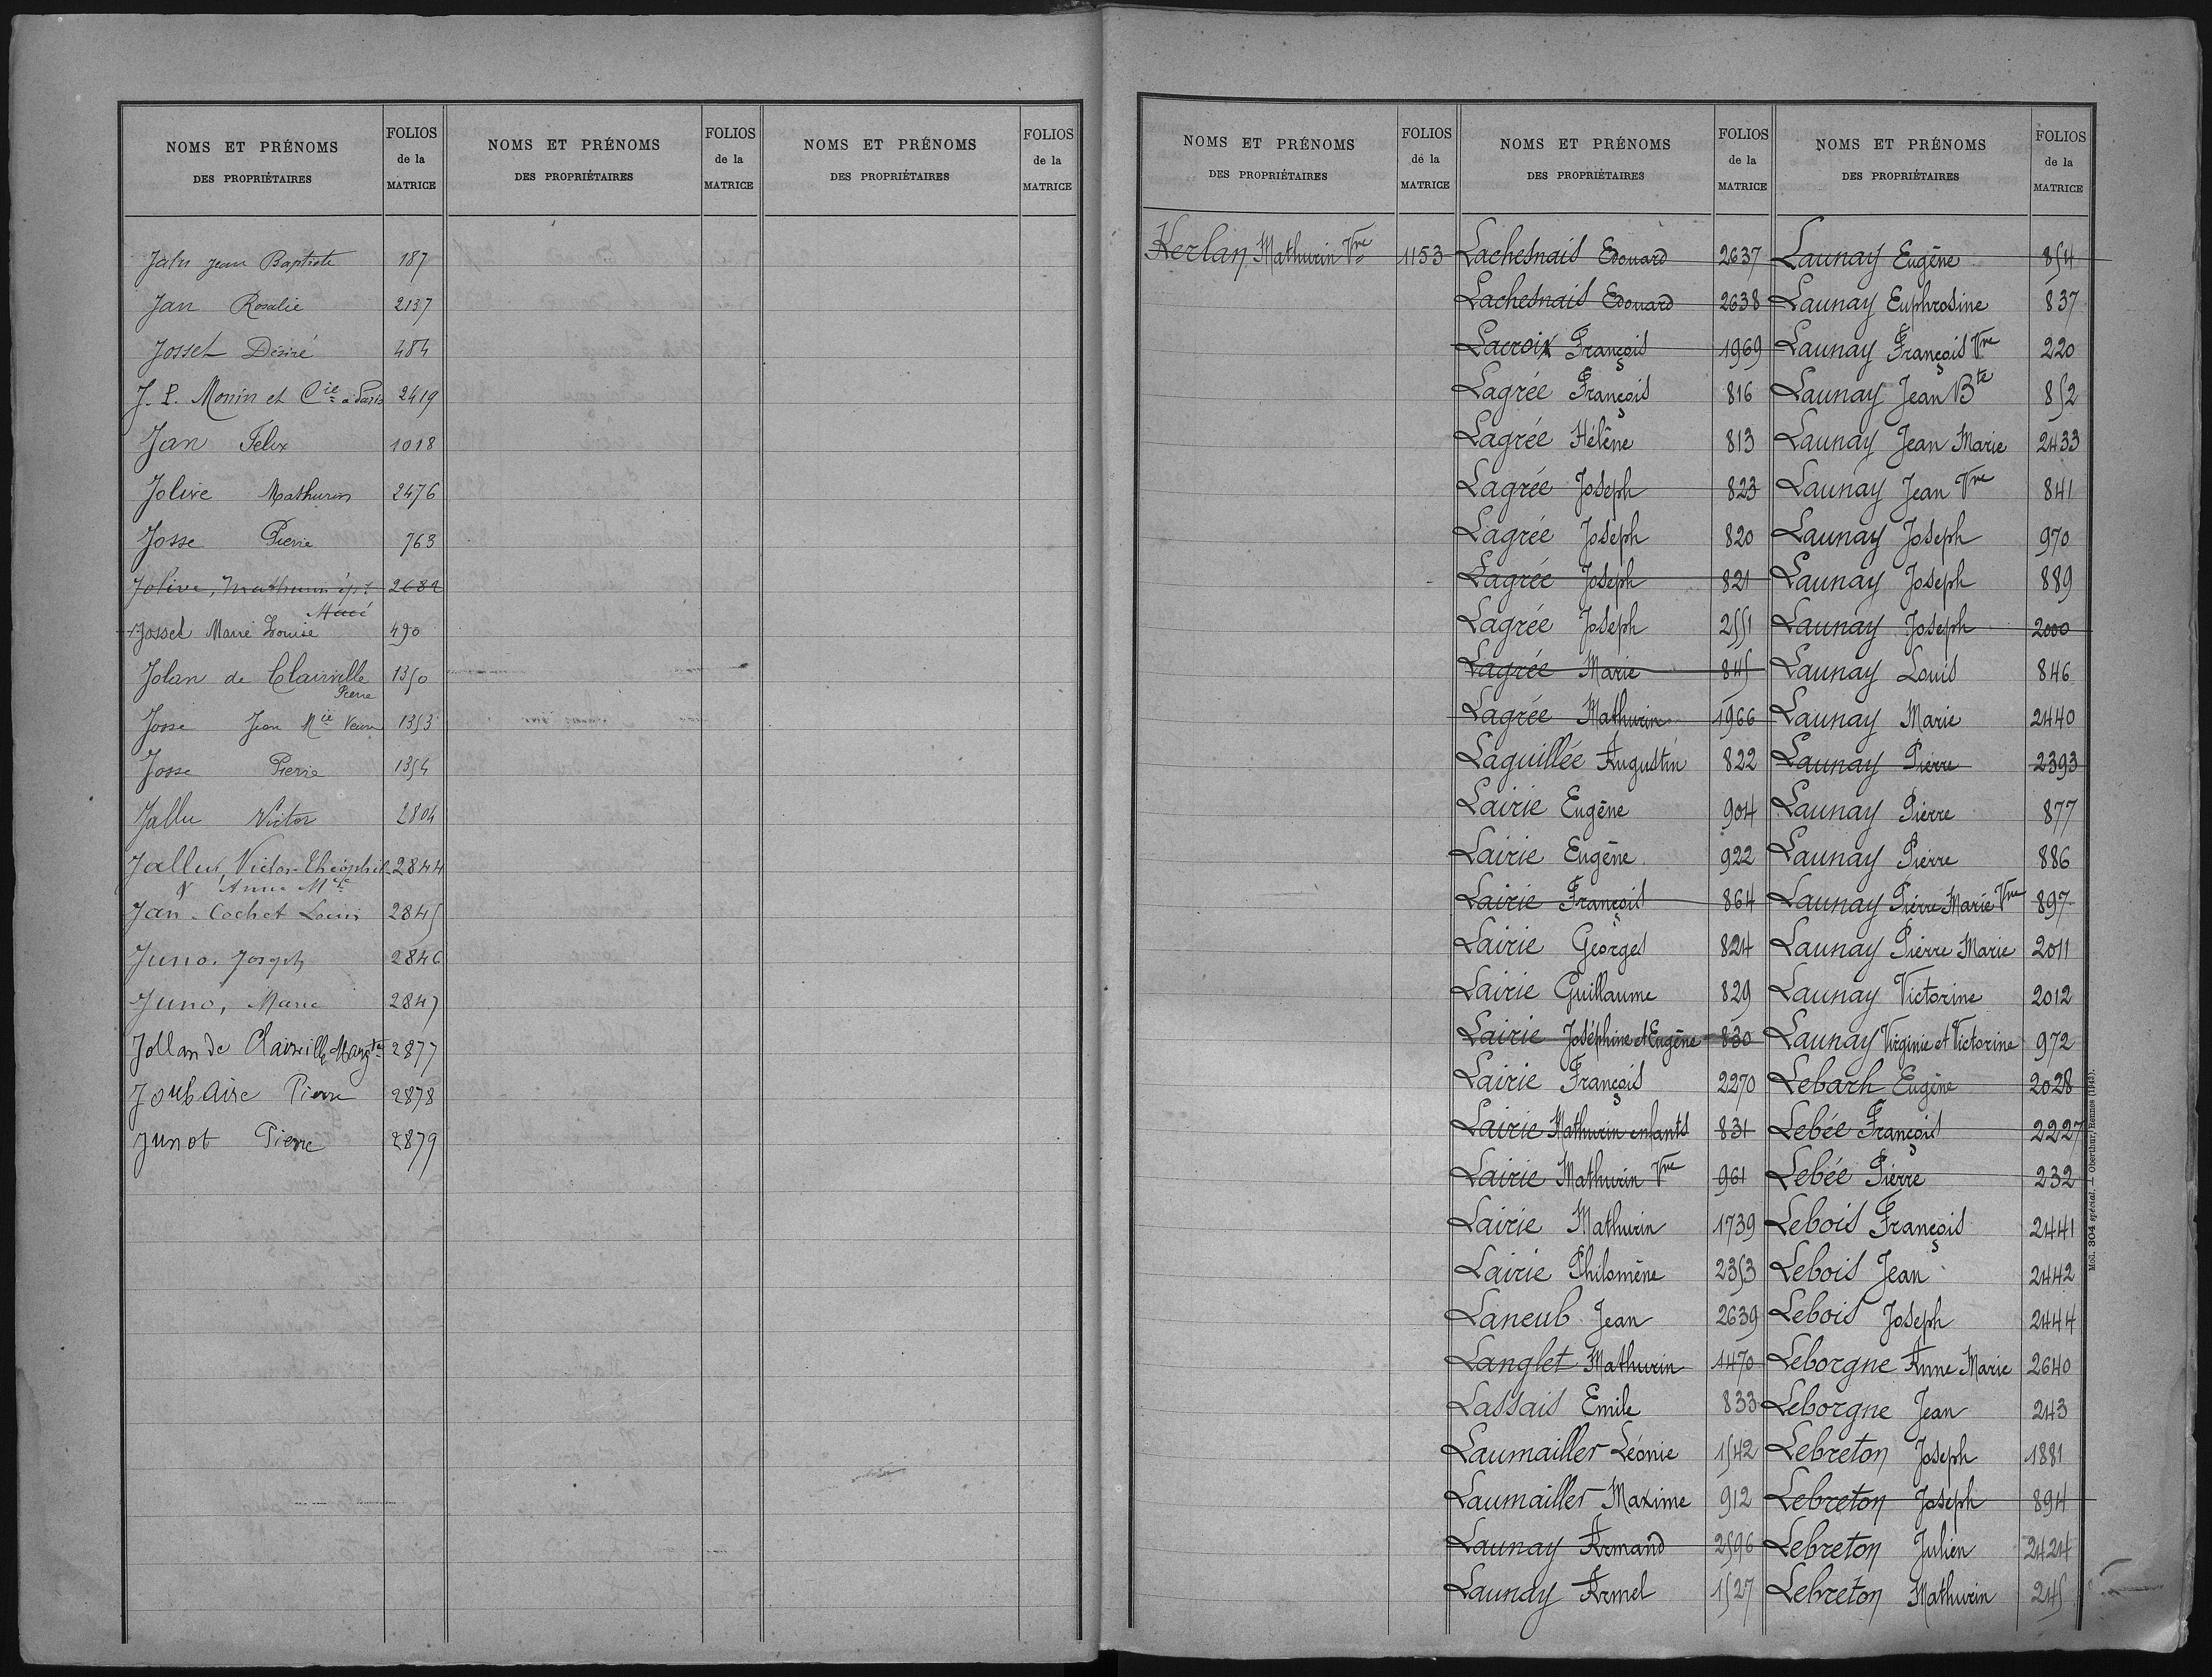 NOMS ET PRÉNOMS
DES PROPRIÉTAIRES
FOLIOS
de la
MATRICE
NOMS ET PRÉNOMS
DES PROPRIÉTAIRES
FOLIOS
de la
MATRICE
NOMS ET PRÉNOMS
DES PROPRIÉTAIRES
FOLIOS
de la
MATRICE
Jean Baptiste 187
Jan Rosalie 2137
Josset Désiré 484
J. P. Monin et Cie à Paris 2419
Jan Felix 1018
Jolive Mathurin 2476
Josse Pierre 763
Jolive, Mathurin 2682
Macé
Josset Marie Louise 490
Jolan de Clairville 1350
Pierre
Josse Jean Mie Veuve 1353
Josse Pierre 1354
Jallu Victor 2804
Jallu, Victor Théophile 2844
& Anne Mie
Jan-Cochet Louis 2845
Juno. Joseph 2846
Juno, Marie 2847
Jollan de Clairville 2877
Joubaire Pierre 2878
Junot Pierre 2879
NOMS ET PRÉNOMS
DES PROPRIÉTAIRES
FOLIOS
de la
MATRICE
NOMS ET PRÉNOMS
DES PROPRIÉTAIRES
FOLIOS
de la
MATRICE
NOMS ET PRÉNOMS
DES PROPRIÉTAIRES
FOLIOS
de la
MATRICE
Kerlan Mathurin Vve 1153
Lachesnais Edouard 2637
Lachesnais Edouard 2638
Lacroix François 1969
Lagrée François 816
Lagrée Hélène 813
Lagrée Joseph 823
Lagrée Joseph 820
Lagrée Joseph 821
Lagrée Joseph 2551
Lagrée Marie 845
Lagrée Mathurin 1966
Laguillée Augustin 822
Lairie Eugène 904
Lairie Eugène 922
Lairie François 864
Lairie Georges 824
Lairie Guillaume 829
Lairie Joséphine et Eugène 830
Lairie François 2270
Lairie Mathurin enfants 831
Lairie Mathurin Vve 961
Lairie Mathurin 1739
Lairie Philomène 2353
Laneub Jean 2639
Langlet Mathurin 1470
Lassais Emile 833
Laumailler Léonie 1542
Laumailler Maxime 912
Launay Armand 2596
Launay Armel 1527
Launay Eugène 854
Launay Euphrosine 837
Launay François Vve 220
Launay Jean Bte 852
Launay Jean Marie 2433
Launay Jean Vve 841
Launay Joseph 970
Launay Joseph 889
Launay Joseph 2000
Launay Louis 846
Launay Marie 2440
Launay Pierre 2393
Launay Pierre 877
Launay Pierre 886
Launay Pierre Marie Vve 897
Launay Pierre Marie 2011
Launay Victorine 2012
Launay Virginie et Victorine 972
Lebarh Eugène 2028
Lebée François 2227
Lebée Pierre 232
Lebois François 2441
Lebois Jean 2442
Lebois Joseph 2444
Leborgne Anne Marie 2640
Leborgne Jean 243
Lebreton Joseph 1881
Lebreton Joseph 894
Lebreton Julien 2424
Lebreton Mathurin 245
Mod. 304 spécial. — Oberthur, Rennes (1943).